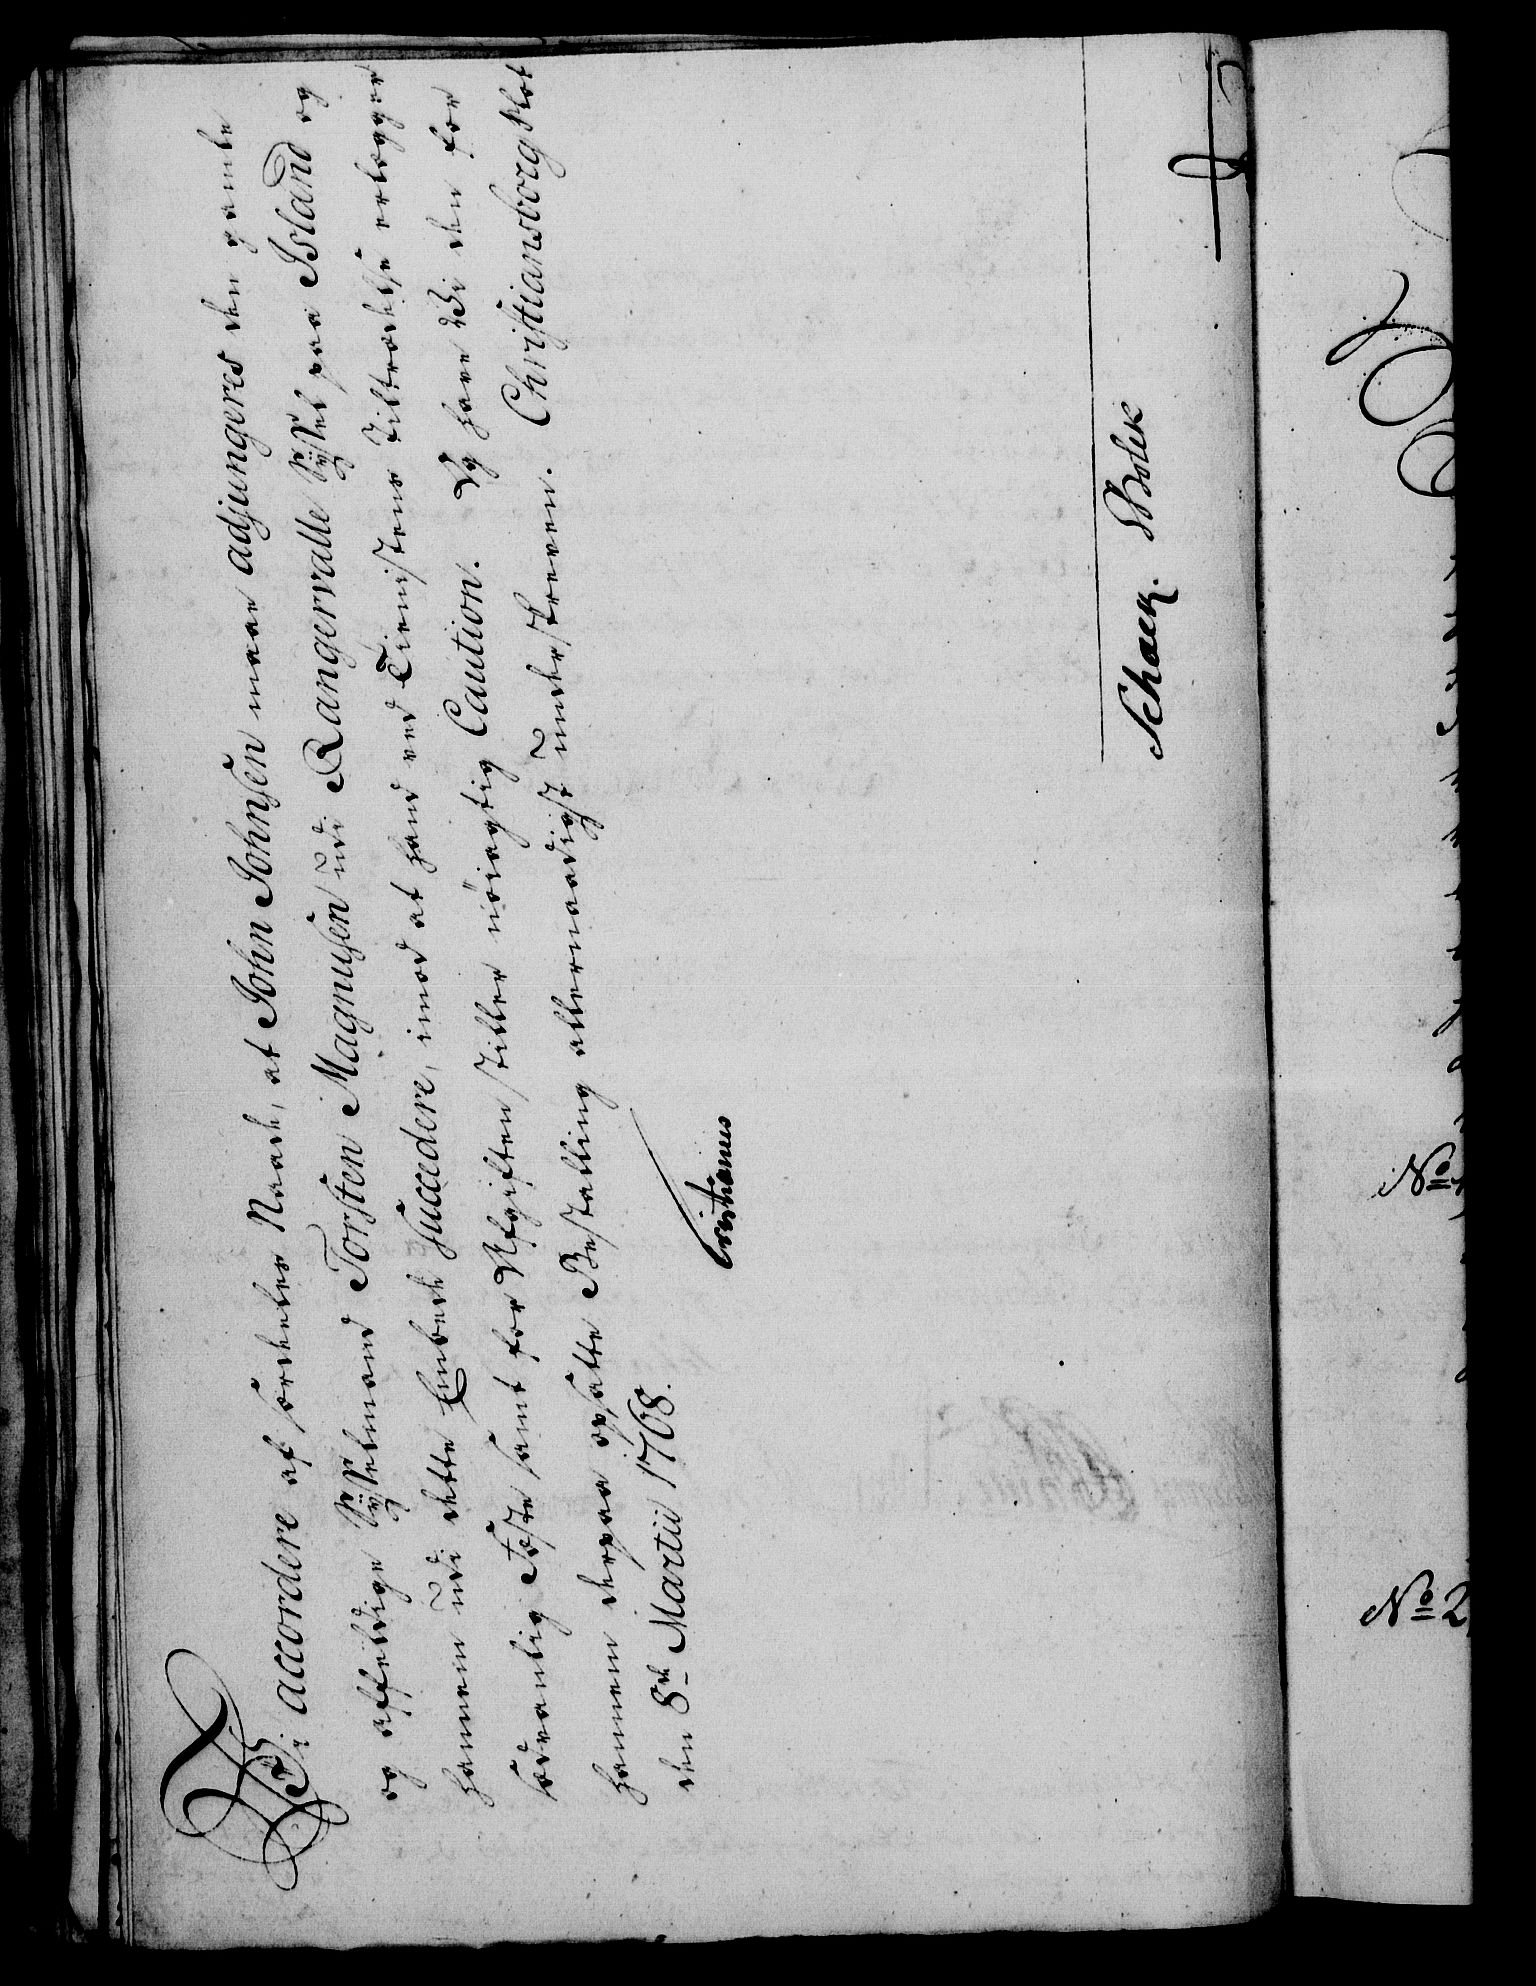 Vi accordere af særdeles Naade, at John Johnsen maae adjungeres den gamle
og affældige Sysselmand Torsten Magnussen udi Rangervalle Syssel paa Island og
hannem udi dette Embede succedere, imod at hand ved Tienistens Tiltrædelse erlægger
sædvanlig Fæste samt for Afgiften stiller nöiagtig Caution. Og have Vi den for
hannem derpaa opsatte Bestalling allernaadigst underskreven. Christiansborg Slot
den 8de Martii 1768.
Christianus
Schack. Holck
No
No 2